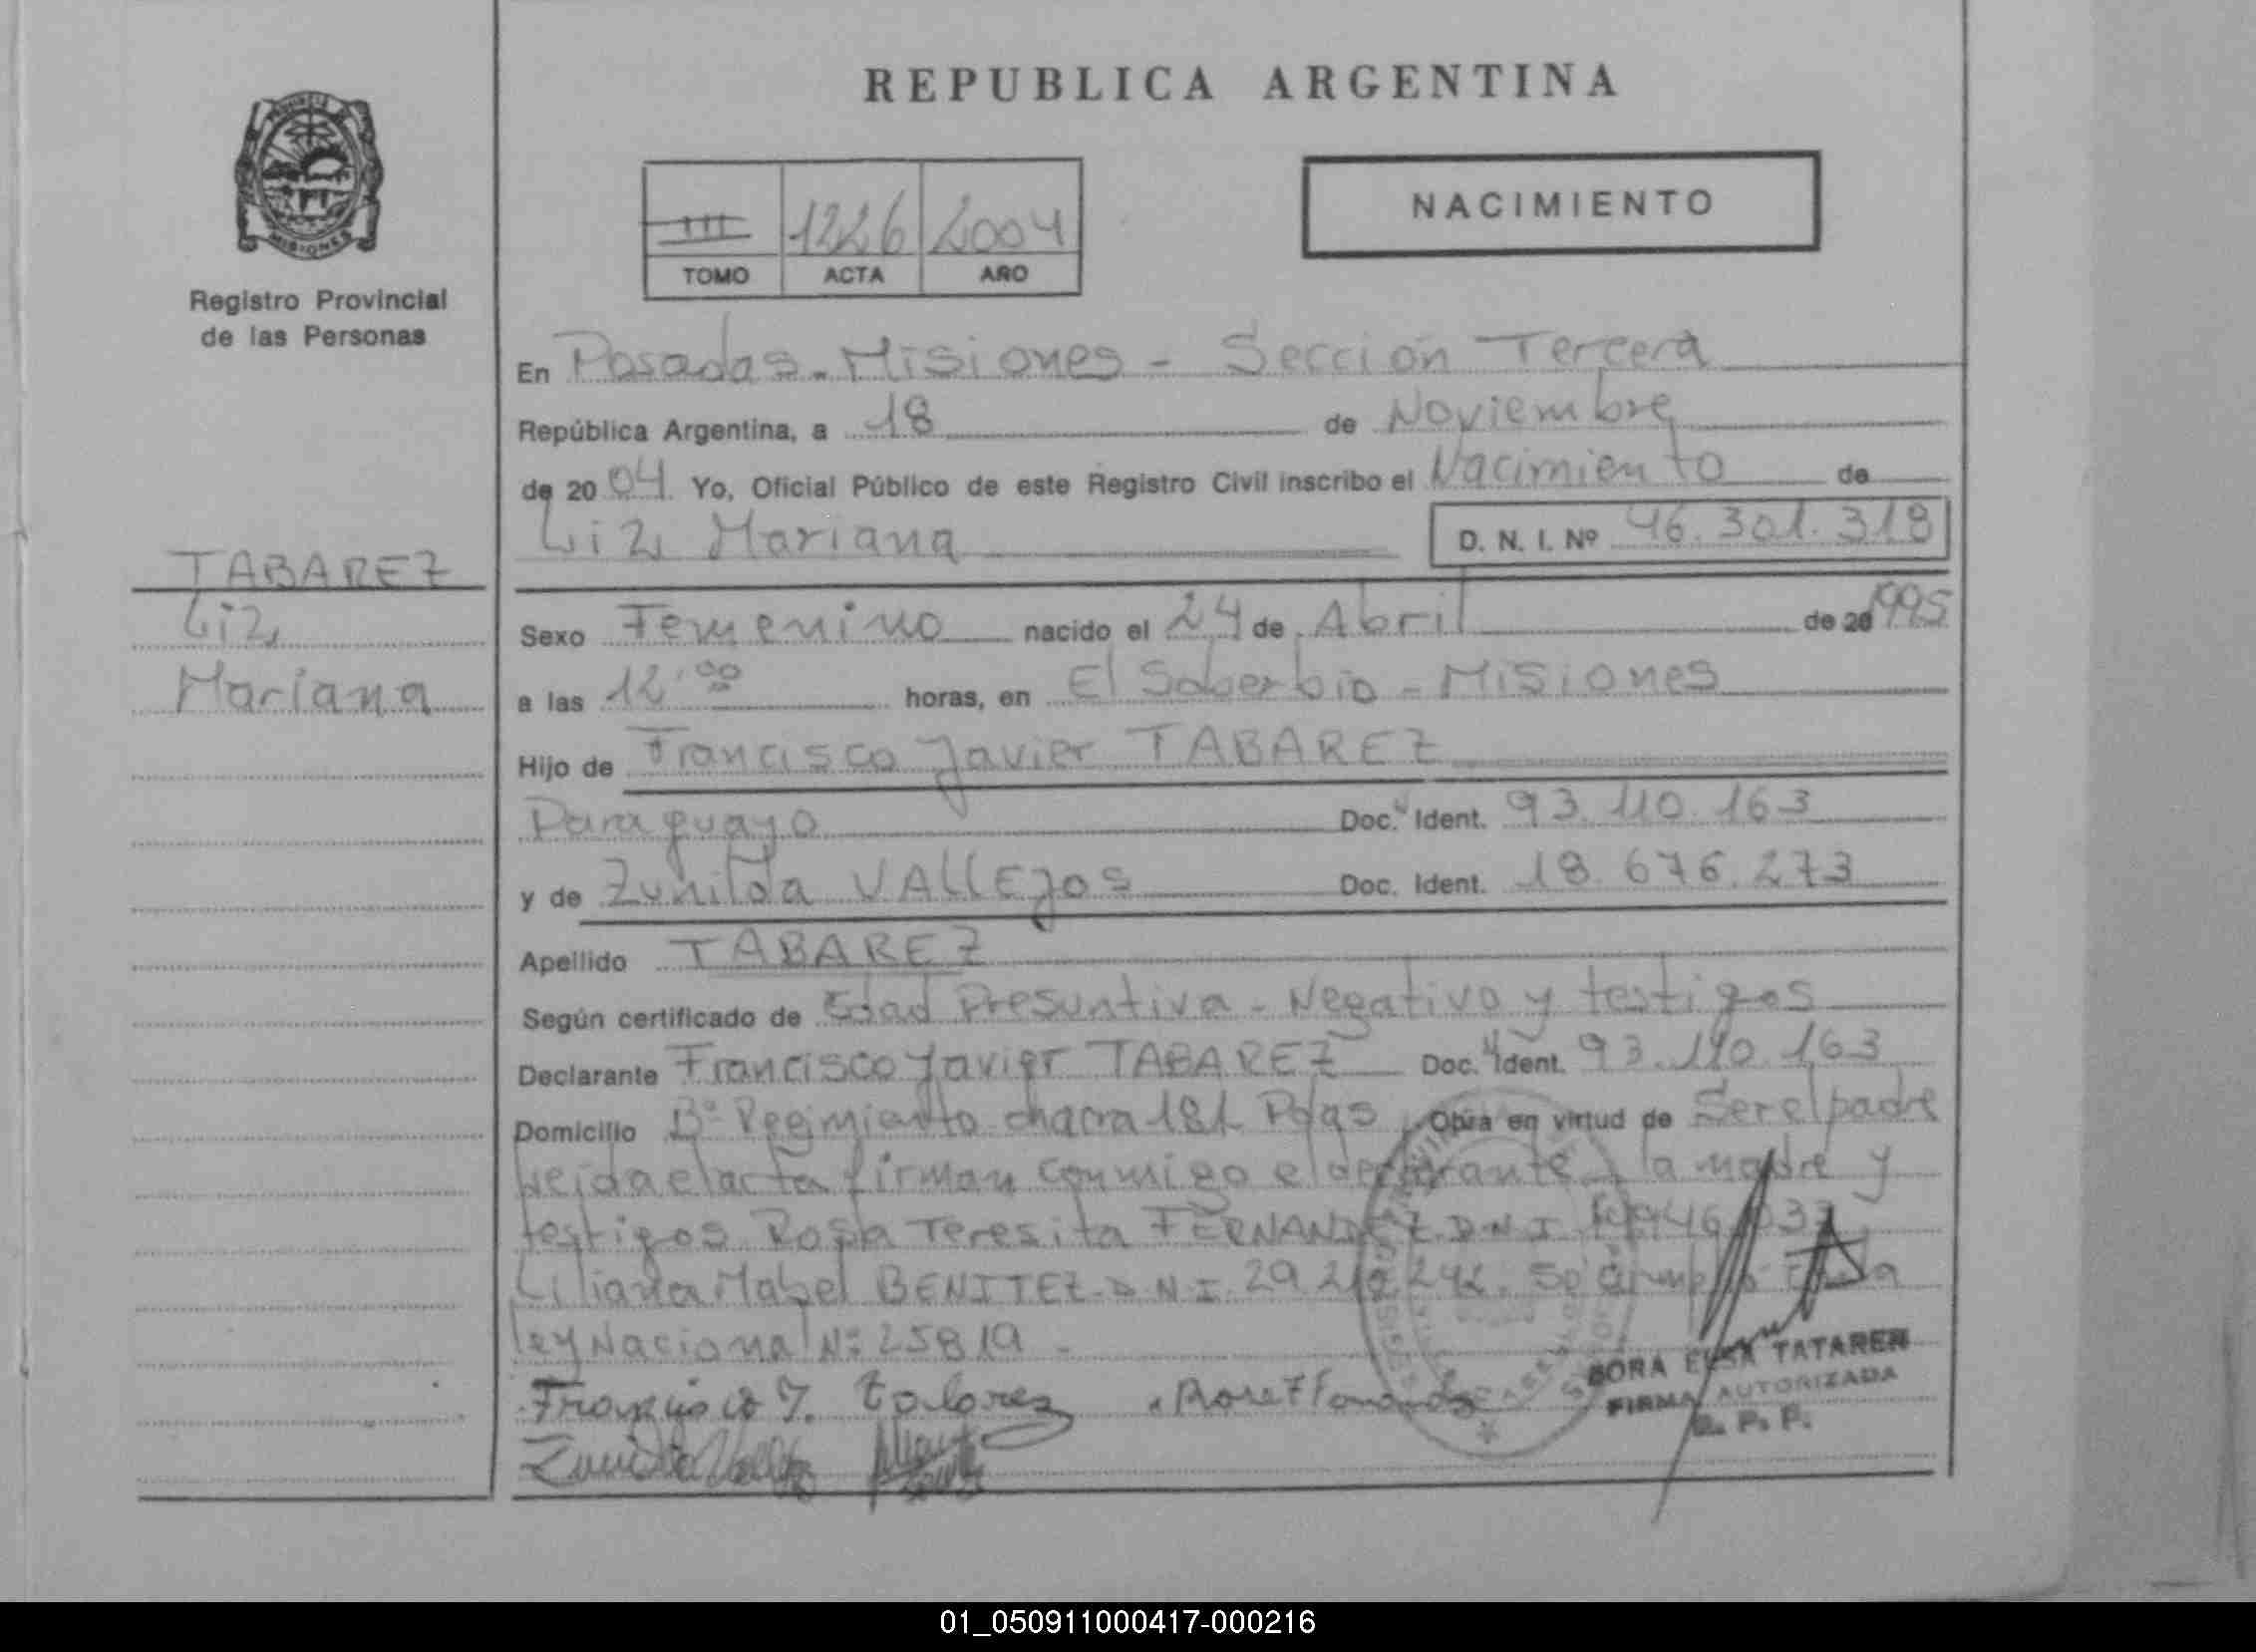 REPUBLICA ARGENTINA
MISIONES
Registro Provincial
de las Personas
III 1226 2004
TOMO ACTA AÑO
NACIMIENTO
En Posadas - Misiones - Sección Tercera
República Argentina, a 18 de Noviembre
de 2004 Yo, Oficial Público de este Registro Civil inscribo el Nacimiento de
Liz Mariana D. N. I. Nº 46.301.318
TABAREZ
Liz
Mariana
Sexo Femenino nacido el 24 de Abril de 20 1995
a las 12,00 horas, en El Soberbio - Misiones
Hijo de Francisco Javier TABAREZ
Paraguayo Doc. Ident. 93.110.163
y de Zunilda VALLEJOS Doc. Ident. 18.676.273
Apellido TABAREZ
Según certificado de Edad Presuntiva - Negativo y testigos
Declarante Francisco Javier TABAREZ Doc. Ident. 93.110.163
Domicilio Bº Regimiento chacra 181 Pdas Obra en virtud de Ser el padre
Leida el acta firman conmigo el declarante, la madre y
testigos Rosa Teresita FERNANDEZ D.N.I.
Liliana Mabel BENITEZ D.N.I. 29.210.242.
ley Nacional Nº 25819 -
Francisco J. Tabarez Rosa T Fernandez
Zunilda
ELSA TATAREN
FIRMA AUTORIZADA
R. P. P.
01_050911000417-000216